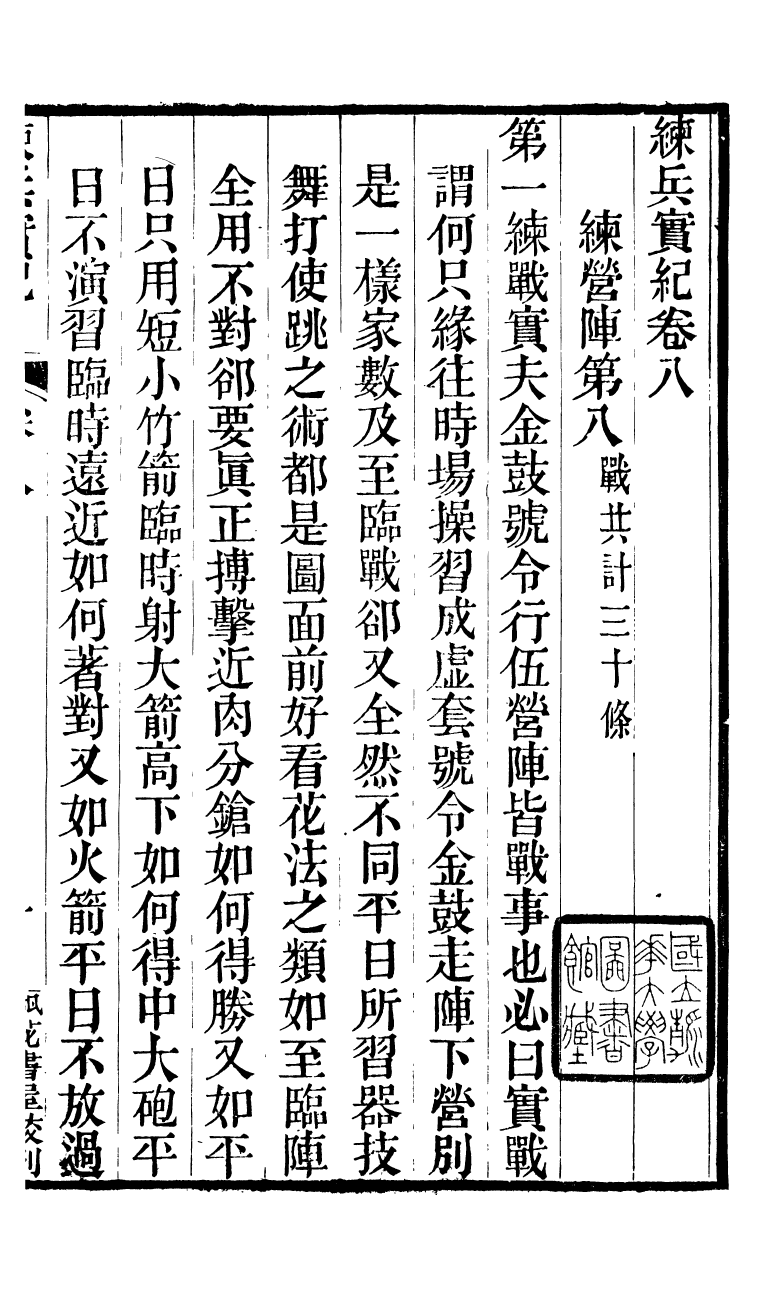 練兵實紀卷八
練營陣第八 戰共計三十條
第一練戰實夫金鼓號令行伍營陣皆戰事也必曰實戰
謂何只緣往時場操習成虛套號令金鼓走陣下營別
是一樣家數及至臨戰卻又全然不同平日所習器技
舞打使跳之術都是圖面前好看花法之類如至臨陣
全用不對卻要眞正搏擊近肉分鎗如何得勝又如平
日只用短小竹箭臨時射大箭高下如何得中大砲平
日不演習臨時遠近如何著對又如火箭平日不放過
國立
華大學
圖書
館藏